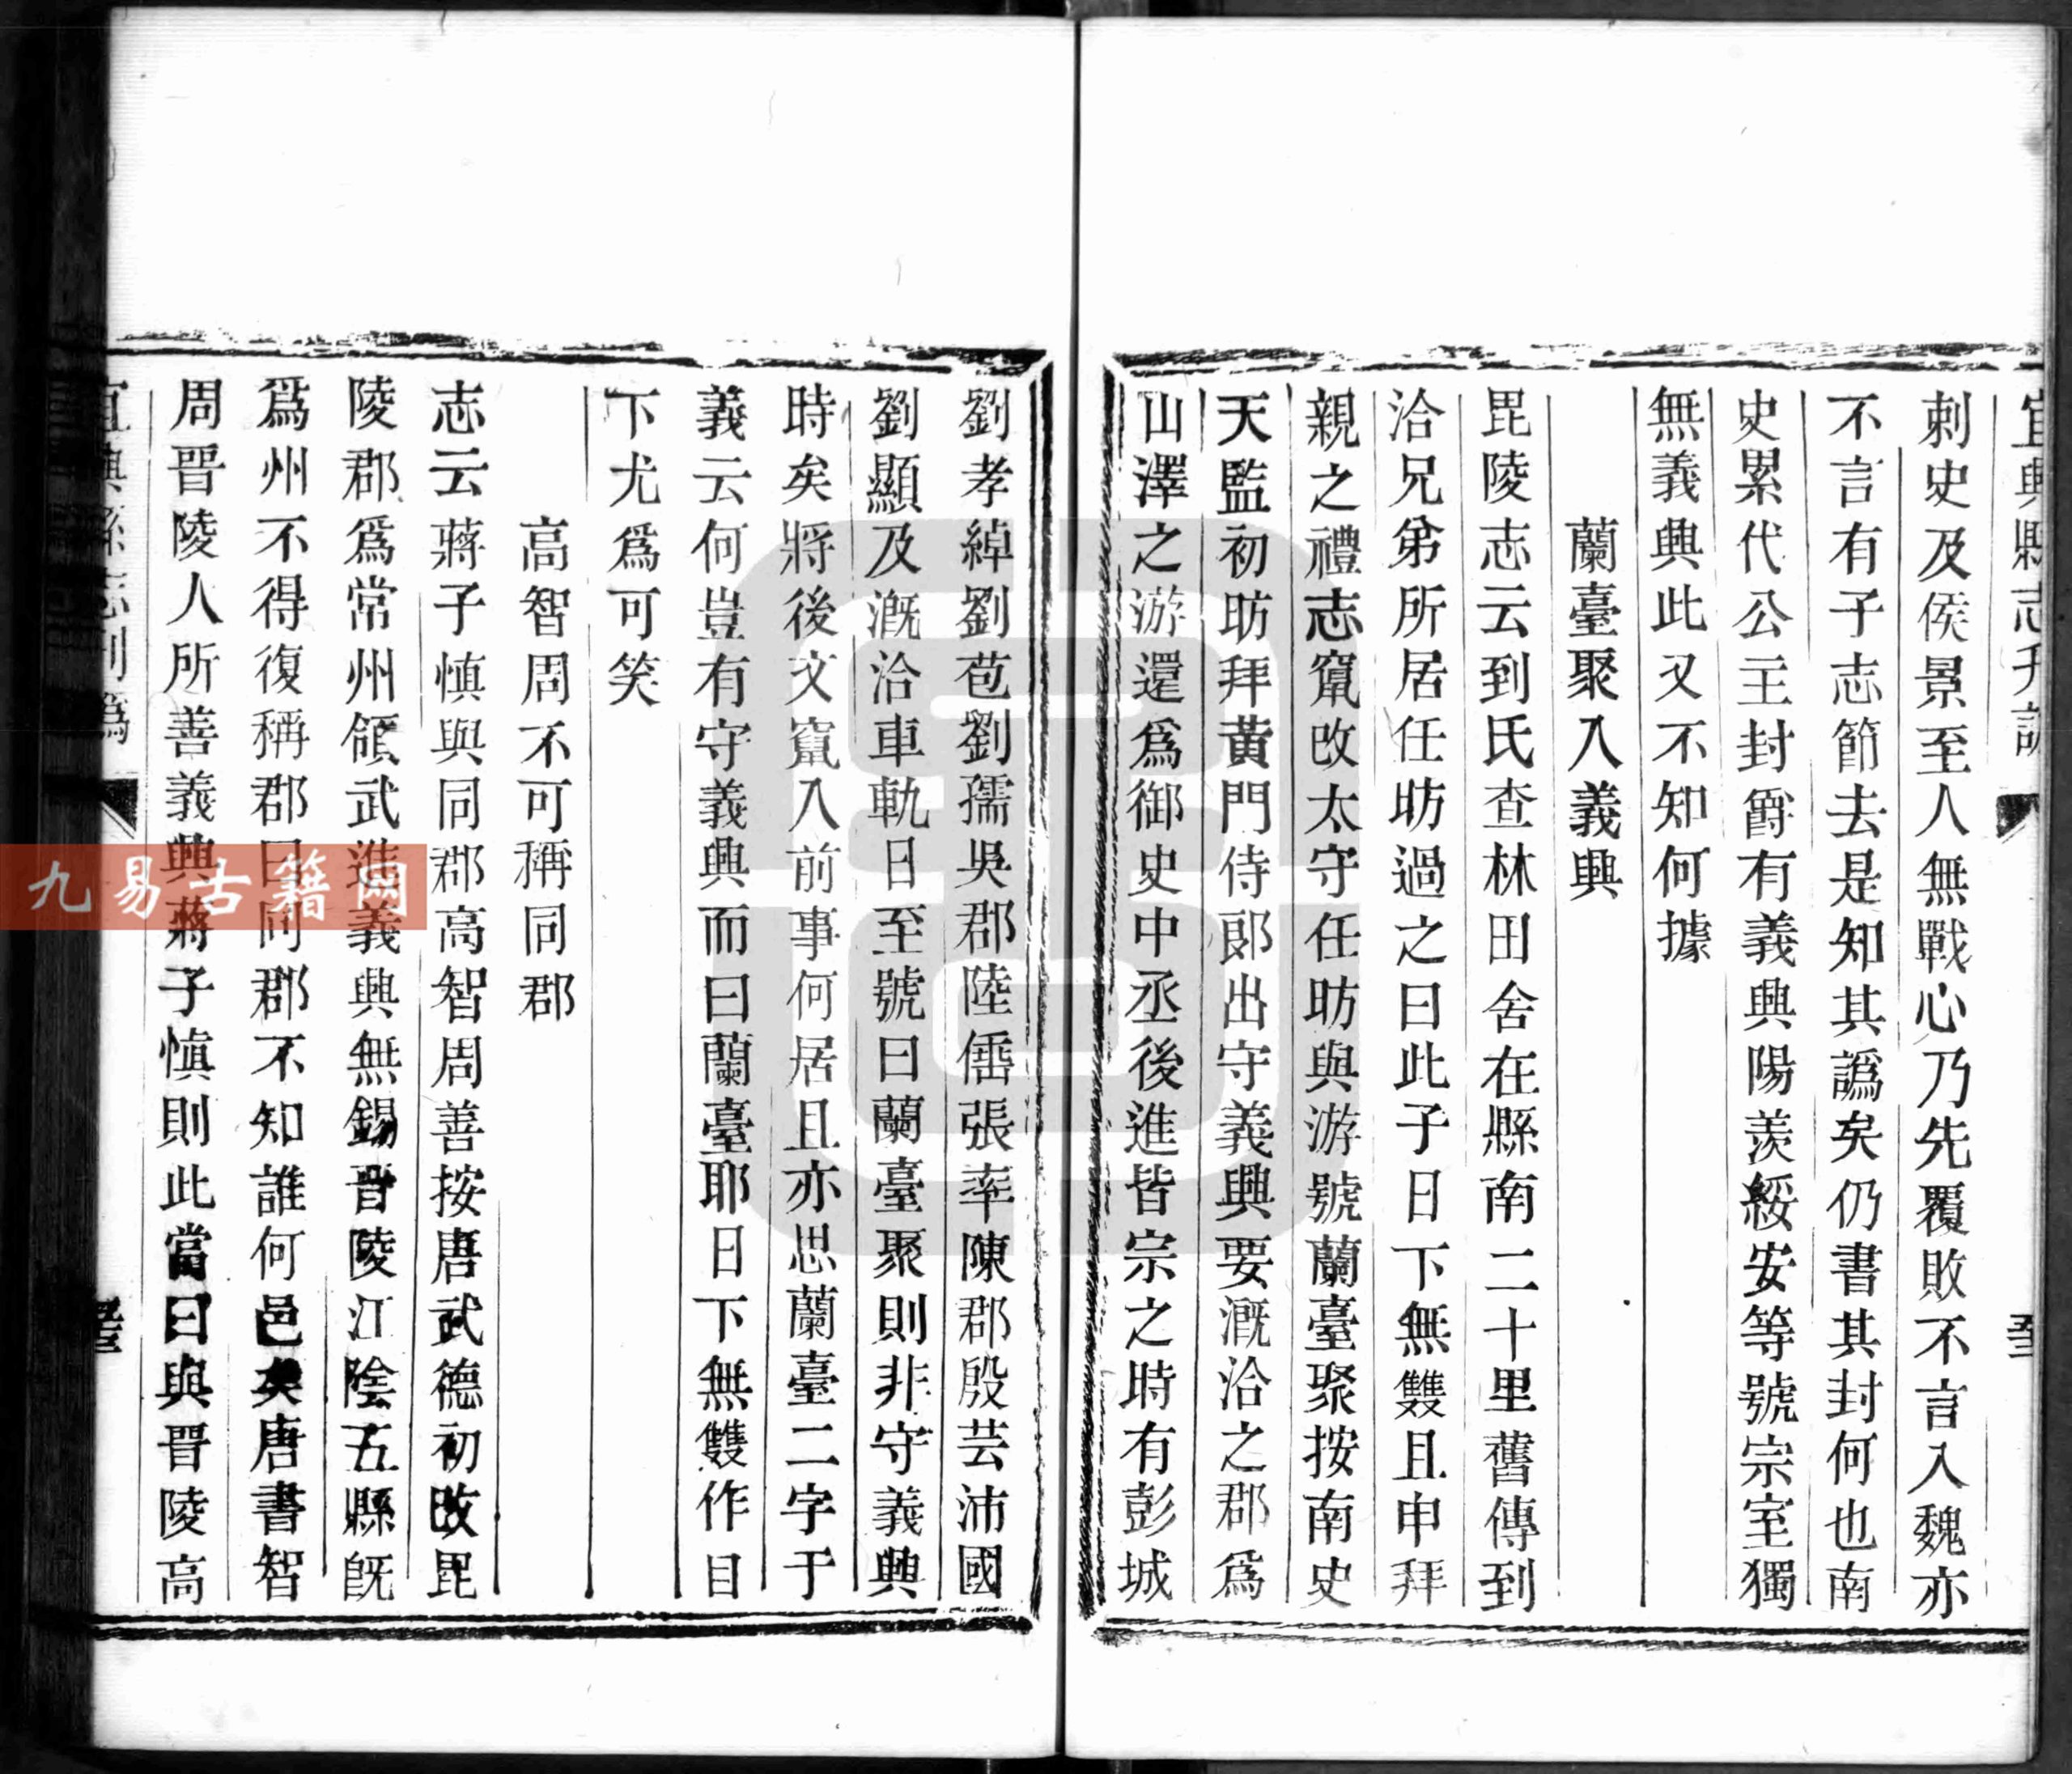 宜興縣志刋訛
刺史及侯景至人無戰心乃先覆敗不言入魏亦
不言有子志節去是知其譌矣仍書其封何也南
史累代公主封爵有義興陽羨綏安等號宗室獨
無義興此又不知何據
蘭臺聚入義興
毘陵志云到氏查林田舍在縣南二十里舊傳到
洽兄弟所居任昉過之曰此子日下無雙且申拜
親之禮志竄改太守任昉與游號蘭臺聚按南史
天監初昉拜黃門侍郎出守義興要漑洽之郡爲
山澤之游還爲御史中丞後進皆宗之時有彭城
劉孝綽劉苞劉孺吳郡陸倕張率陳郡殷芸沛國
劉顯及漑洽車軌日至號曰蘭臺聚則非守義興
時矣將後文竄入前事何居且亦思蘭臺二字于
義云何豈有守義興而曰蘭臺耶日下無雙作目
下尤爲可笑
高智周不可稱同郡
志云蔣子慎與同郡高智周善按唐武德初改毘
陵郡爲常州領武進義興無錫晉陵江陰五縣旣
爲州不得復稱郡曰同郡不知誰何邑矣唐書智
周晉陵人所善義興蔣子愼則此當曰與晉陵高
宜興縣志刋譌
九易古籍网